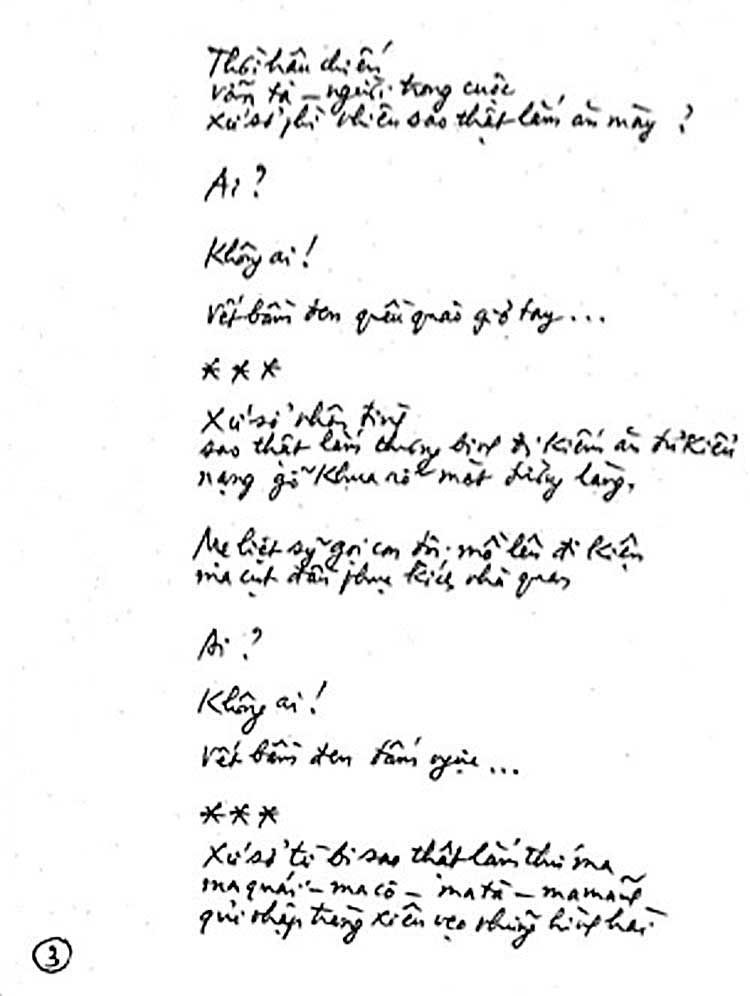 Thời hậu chiến
vẫn ta – người trong cuộc
xứ sở phì nhiêu sao thật lắm ăn mày ?
Ai ?
Không ai !
Vết bầm đen quều quào giơ tay ...
* * *
Xứ sở nhân tình
sao thật lắm thương binh đi kiếm ăn đủ kiểu
nạng gỗ khua rỗ mặt đường làng.
Mẹ liệt sỹ gọi con đội mồ lên đi kiện
ma cụt đầu phục kích nhà quan
Ai ?
Không ai !
Vết bầm đen đấm ngực ...
* * *
Xứ sở từ bi sao thật lắm thứ ma
ma quái – ma cô – ma tà – ma mãnh
quỉ nhập tràng xiêu vẹo những hình hài
3